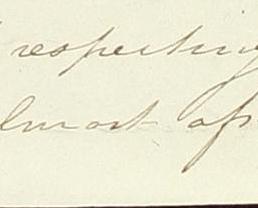 respecting
lmost af